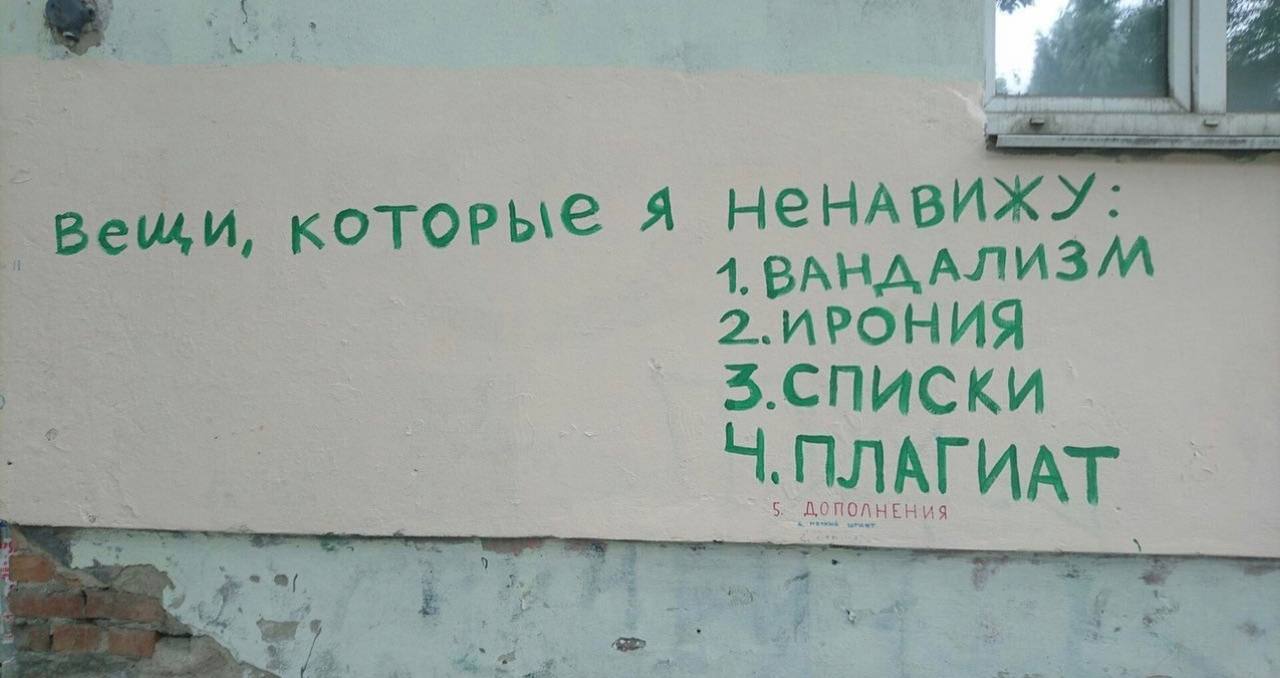 Вещи, которые я ненавижу:
1. ВАНДАЛИЗМ
2. ИРОНИЯ
3. СПИСКИ
4. ПЛАГИАТ
5. ДОПОЛНЕНИЯ
6. мелкий шрифт